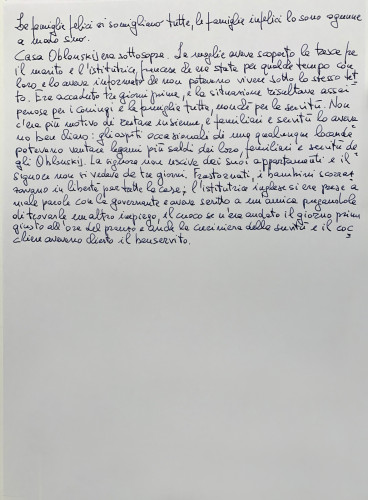 Le famiglie felici si somigliano tutte, le famiglie infelici lo sono ognuna
a modo suo.
Casa Oblonskij era sottosopra. La moglie aveva scoperto la tresca fra
il marito e l'istitutrice francese che era stata per qualche tempo con
loro e lo aveva informato che non potevano vivere sotto lo stesso tet-
to. Era accaduto tre giorni prima, e la situazione risultava assai
penosa per i coniugi e la famiglia tutta, nonché per la servitù. Non
c'era più motivo di restare insieme, e familiari e servitù lo aveva-
no ben chiaro: gli ospiti occasionali di una qualunque locanda
potevano vantare legami più saldi dei loro, familiari e servitù de-
gli Oblonskij. La signora non usciva dai suoi appartamenti e il
signore non si vedeva da tre giorni. Frastornati, i bambini scoraz-
zavano in libertà per tutta la casa; l'istitutrice inglese si era presa a
male parole con la governante e aveva scritto a un'amica pregandola
di trovarle un altro impiego, il cuoco se n'era andato il giorno prima
giusto all'ora del pranzo e anche la cuciniera della servitù e il coc-
chiere avevano chiesto il benservito.